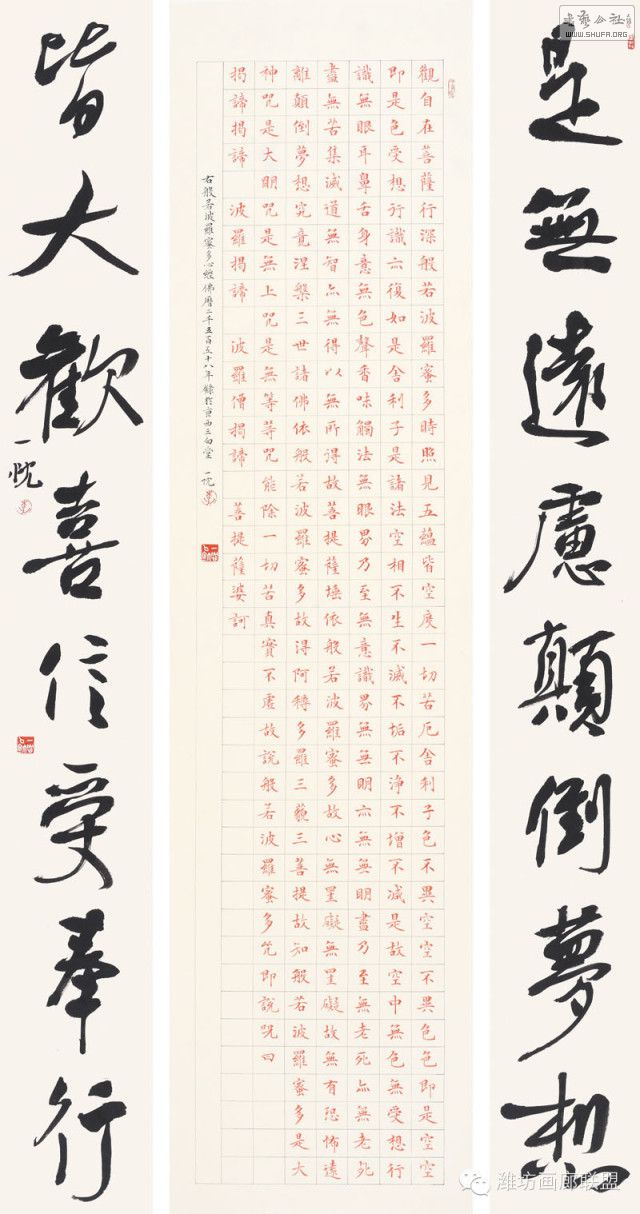 書藝公社
WWW.SHUFA.ORG
是無遠慮顛倒夢想
觀自在菩薩行深般若波羅蜜多時照見五蘊皆空度一切苦厄舍利子色不異空空不異色色即是空空
即是色受想行識亦復如是舍利子是諸法空相不生不滅不垢不淨不增不減是故空中無色無受想行
識無眼耳鼻舌身意無色聲香味觸法無眼界乃至無意識界無無明亦無無明盡乃至無老死亦無老死
盡無苦集滅道無智亦無得以無所得故菩提薩埵依般若波羅蜜多故心無罣礙無罣礙故無有恐怖遠
離顛倒夢想究竟涅槃三世諸佛依般若波羅蜜多故得阿耨多羅三藐三菩提故知般若波羅蜜多是大
神咒是大明咒是無上咒是無等等咒能除一切苦真實不虛故說般若波羅蜜多咒即說咒曰
揭諦揭諦 波羅揭諦 波羅僧揭諦 菩提薩婆訶
右般若波羅蜜多心經佛曆二千五百五十八年錄於京西三向堂 一忱
皆大歡喜信受奉行
一忱
潍坊画廊联盟